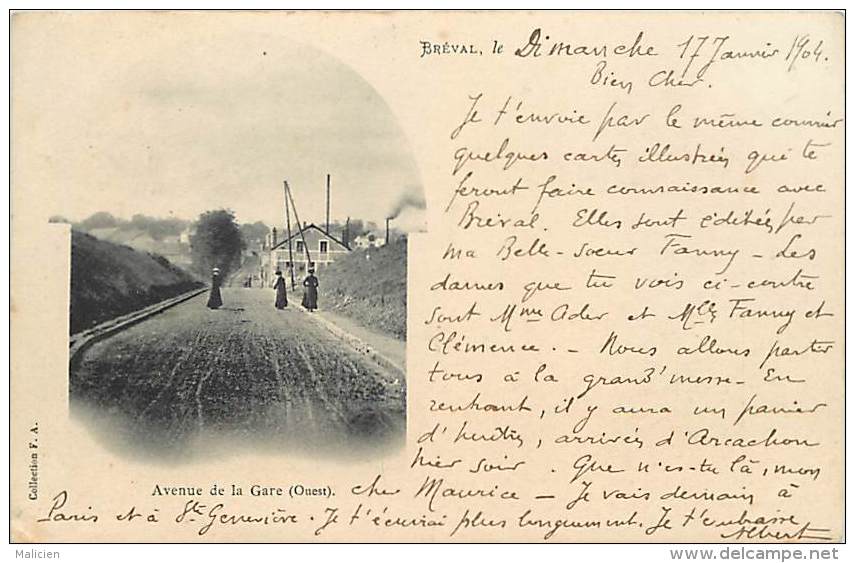 BRÉVAL, le Dimanche 17 Janvier 1904.
Bien Cher.
Je t'envoie par le même courrier
quelques cartes illustrées que te
feront faire connaissance avec
Bréval. Elles sont éditées par
ma Belle-soeur Fanny - Les
dames que tu vois ci-contre
sont Mme Ader et Mlles Fanny et
Clémence. - Nous allons partir
tous à la grand'messe - En
rentrant, il y aura un panier
d'huîtres, arrivées d'Arcachon
hier soir. Que n'es-tu là, mon
cher Maurice - Je vais demain à
Paris et à Ste Geneviève. Je t'écrirai plus longuement. Je t'embrasse
Albert
Avenue de la Gare (Ouest).
Collection F. A.
Malicien
delcampe.net